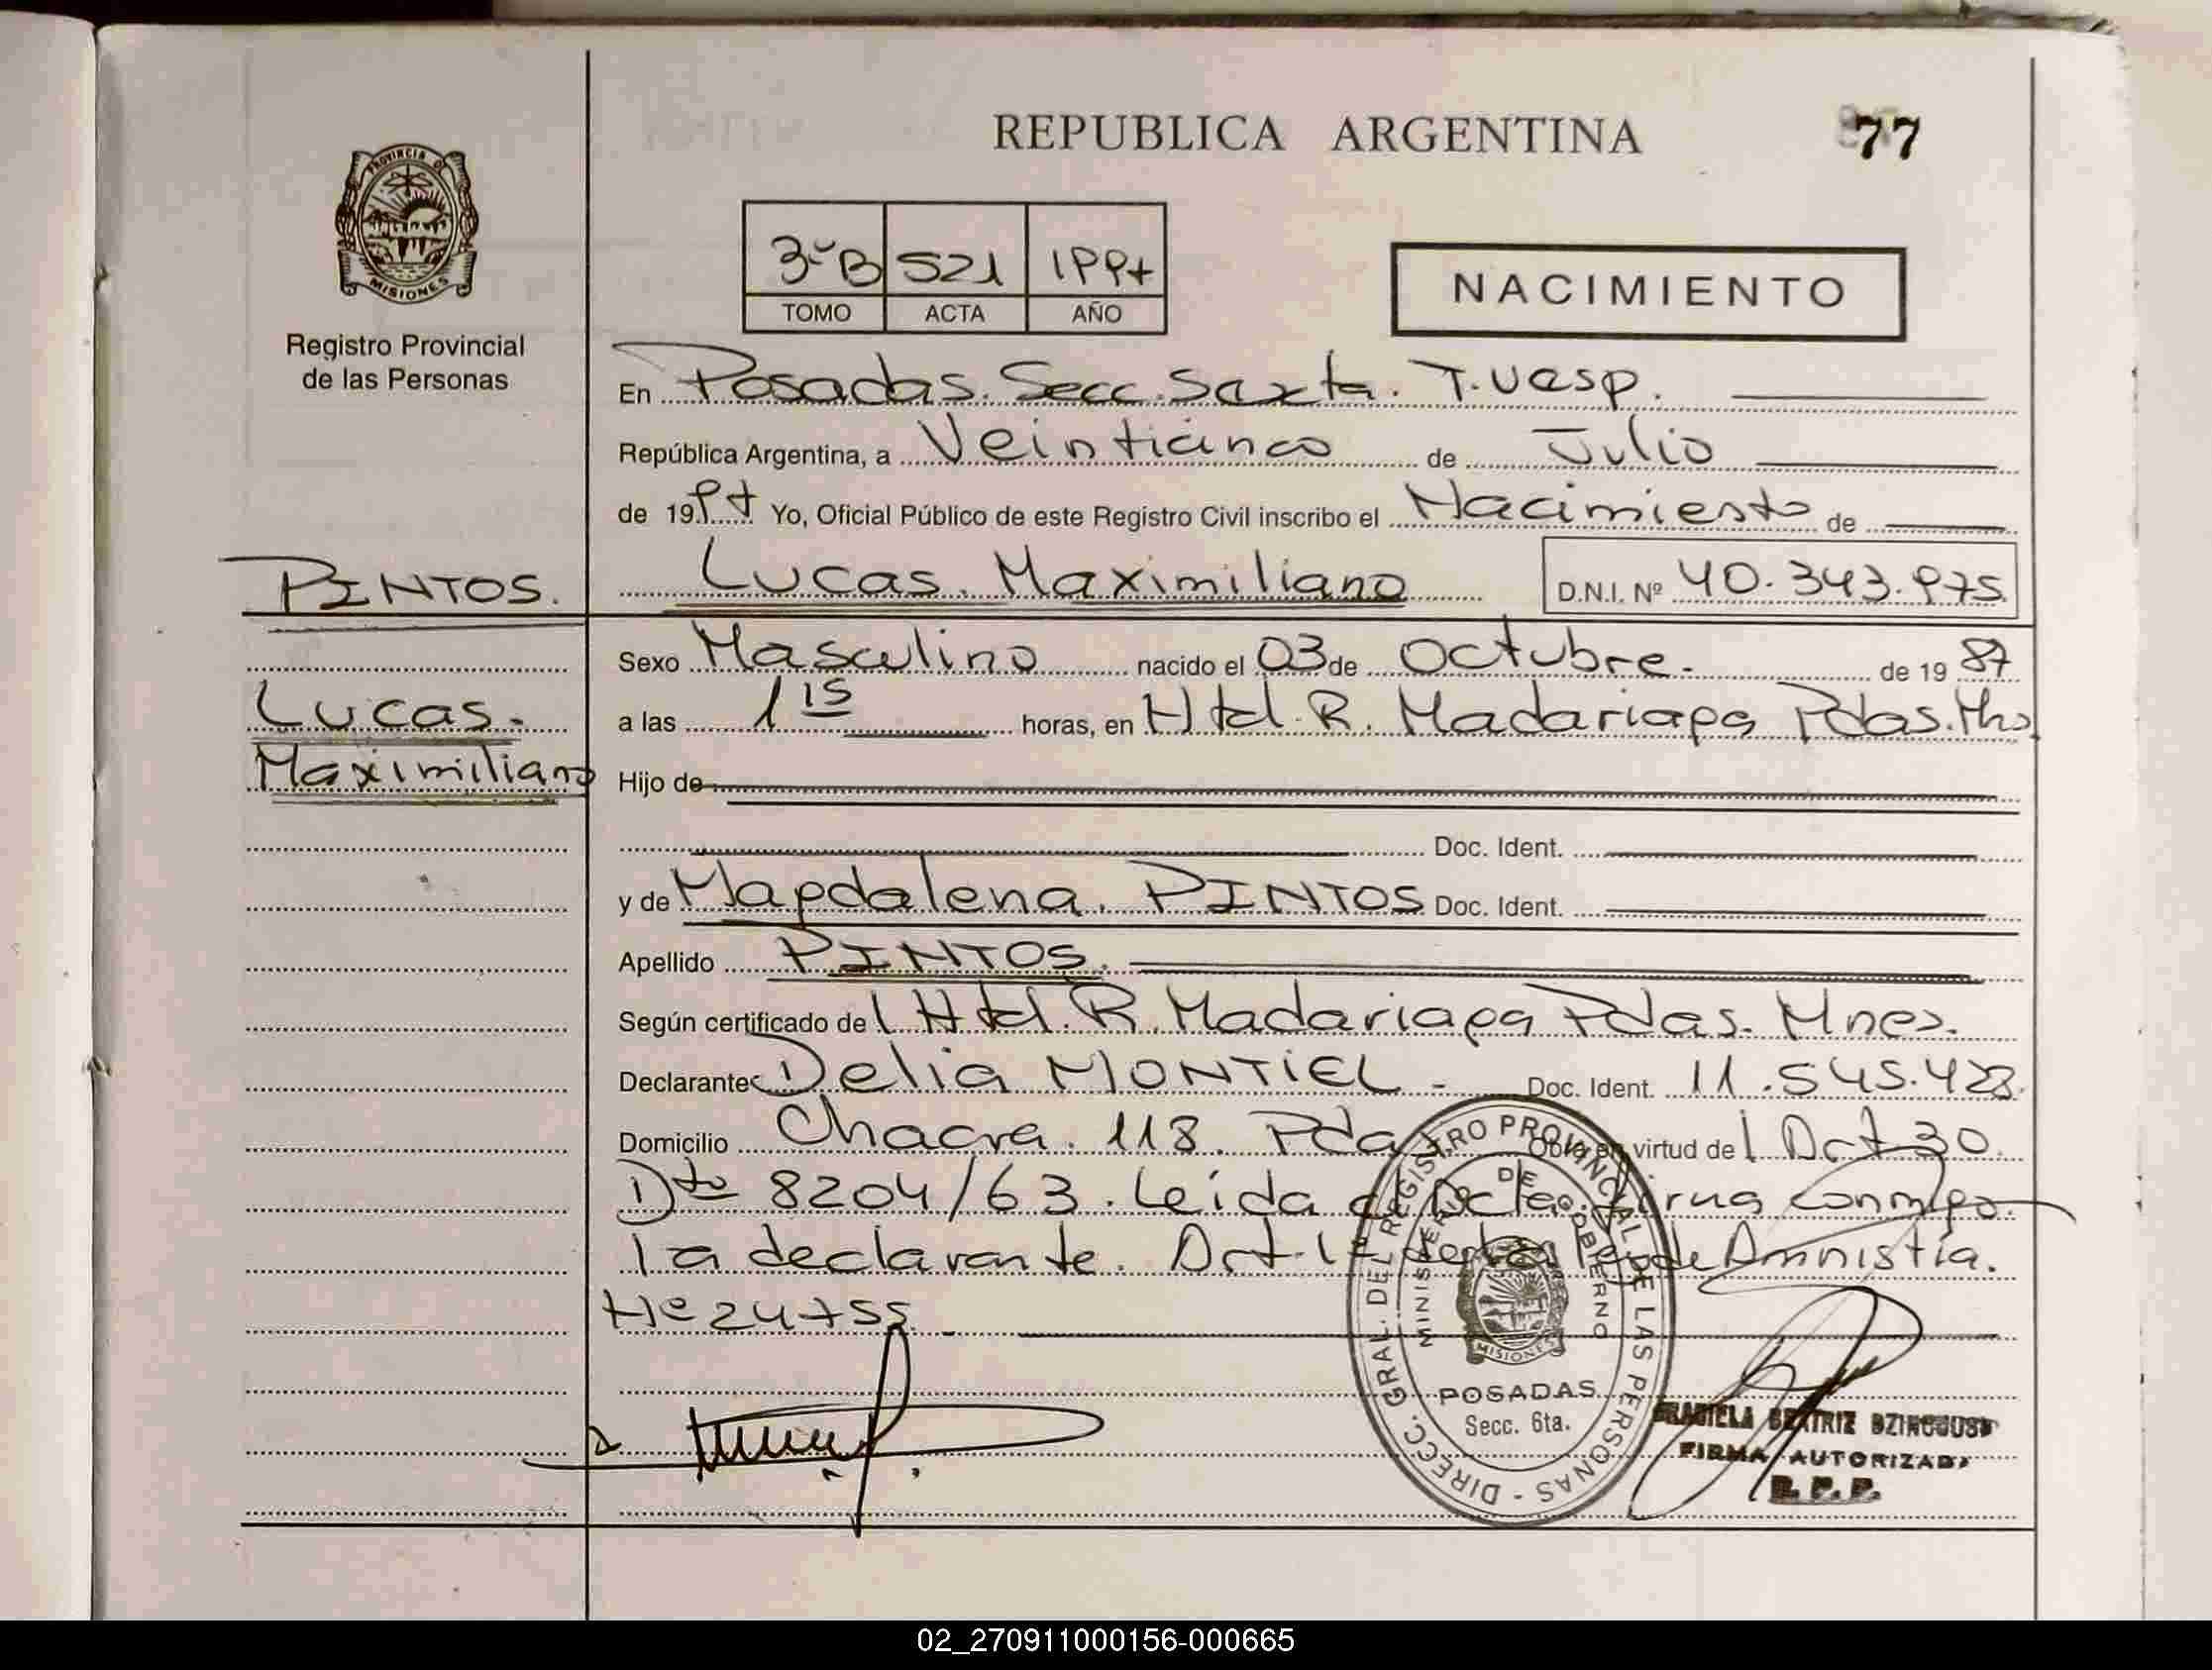 REPUBLICA ARGENTINA
77
PROVINCIA DE
MISIONES
Registro Provincial
de las Personas
3ºB 521 1997
TOMO ACTA AÑO
NACIMIENTO
En Posadas. Secc. Sexta. T. Vesp.
República Argentina, a Veinticinco de Julio
de 1997 Yo, Oficial Público de este Registro Civil inscribo el Nacimiento de
PINTOS.
Lucas. Maximiliano D.N.I. Nº 40.343.975
Sexo Masculino nacido el 03 de Octubre. de 1987
Lucas.
a las 1 15 horas, en Htal. R. Madariaga Pdas. Mns
Maximiliano
Hijo de
Doc. Ident.
y de Magdalena. PINTOS Doc. Ident.
Apellido PINTOS.
Según certificado del Htal. R. Madariaga Pdas. Mnes.
Declarante Delia MONTIEL - Doc. Ident. 11.545.428
Domicilio Chacra. 118. Pda Obra en virtud del Art 30.
Dto 8204/63. Leída el Acta firma conmigo.
la declarante. Art. 1º de la Ley de Amnistía.
Nº 24755
DIRECC. GRAL. DEL REGISTRO PROVINCIAL DE LAS PERSONAS -
MINISTERIO DE GOBIERNO
MISIONES
POSADAS
Secc. 6ta.
GRACIELA BEATRIZ
FIRMA AUTORIZADA
R. P. P.
02_270911000156-000665